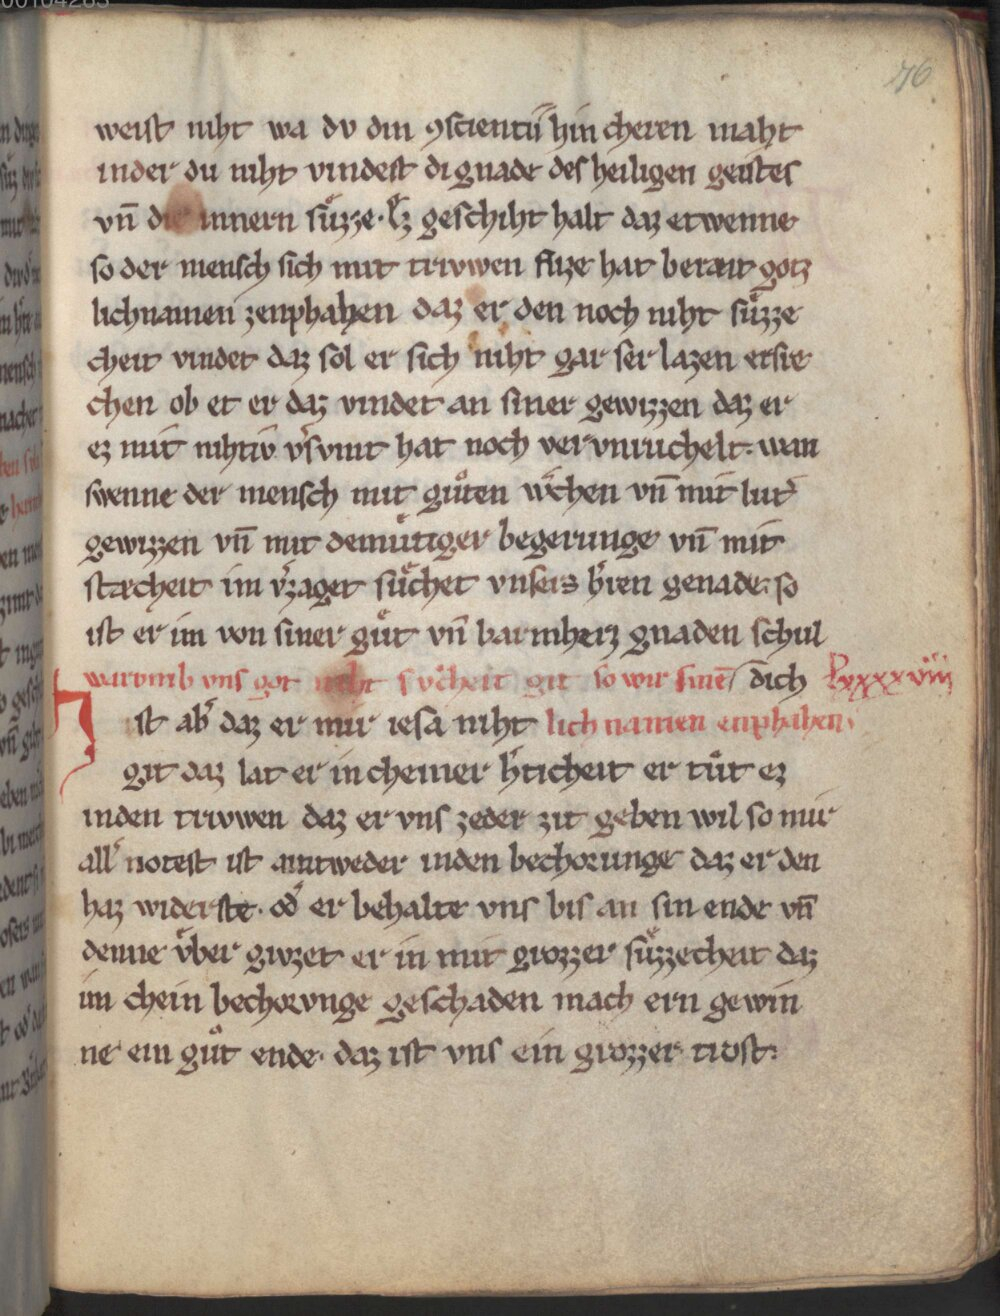 76
weist niht wa dv din ꝯscientiī hin cheren maht
inder du niht vindest di gnade des heiligen geistes
vn̄ die innern sůzze · Ez geschiht halt daz etwenne
so der mensch sich mit trivwen flize hat berait gotz
lichnamen zenphahen daz er den noch niht sůzze
cheit vindet daz sol er sich niht gar ser lazen ersre
chen ob et er daz vindet an siner gewizzen daz er
ez mit nihtiv v̓svmt hat noch vervnruchelt · wan
swenne der mensch mit gůten wͦchen vn̄ mit lut̓
gewizzen vn̄ mit demůtiger begerunge vn̄ mit
stætcheit im v̓zaget sůchet vnsers h̓ren genade · so
ist er im von siner gůt vn̄ barmherz gnaden schul
warvmb vns got niht sůcheit git so wir sinē / dich Lxxxxviii
ist ab̓ daz er mir iesa niht lichnamen enphahen ·
git daz lat er in cheiner h̓ticheit er tůt ez
inden trivwen daz er vns zeder zit geben wil so mir
all̓ notest ist aintweder inden bechorunge daz er den
haz widerste · od̓ er behalte vns bis an sin ende vn̄
denne v̊ber givzet er in mit grozzer sůzzecheit daz
im chein bechorvnge geschaden mach ern gewin
ne ein gůt ende · daz ist vns ein grozzer trost :